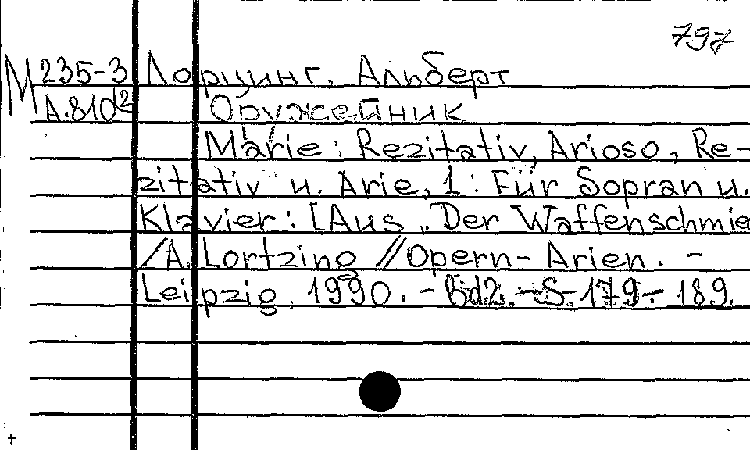 797
М 235-3 Лорцинг, Альберт
А.810² Оружейник
Marie: Rezitativ, Arioso, Re-
zitativ u. Arie, 1: Für Sopran u.
Klavier: [Aus „Der Waffenschmie
/A. Lortzing //Opern- Arien. -
Leipzig, 1990. - Bd2. - S. 179- 189.